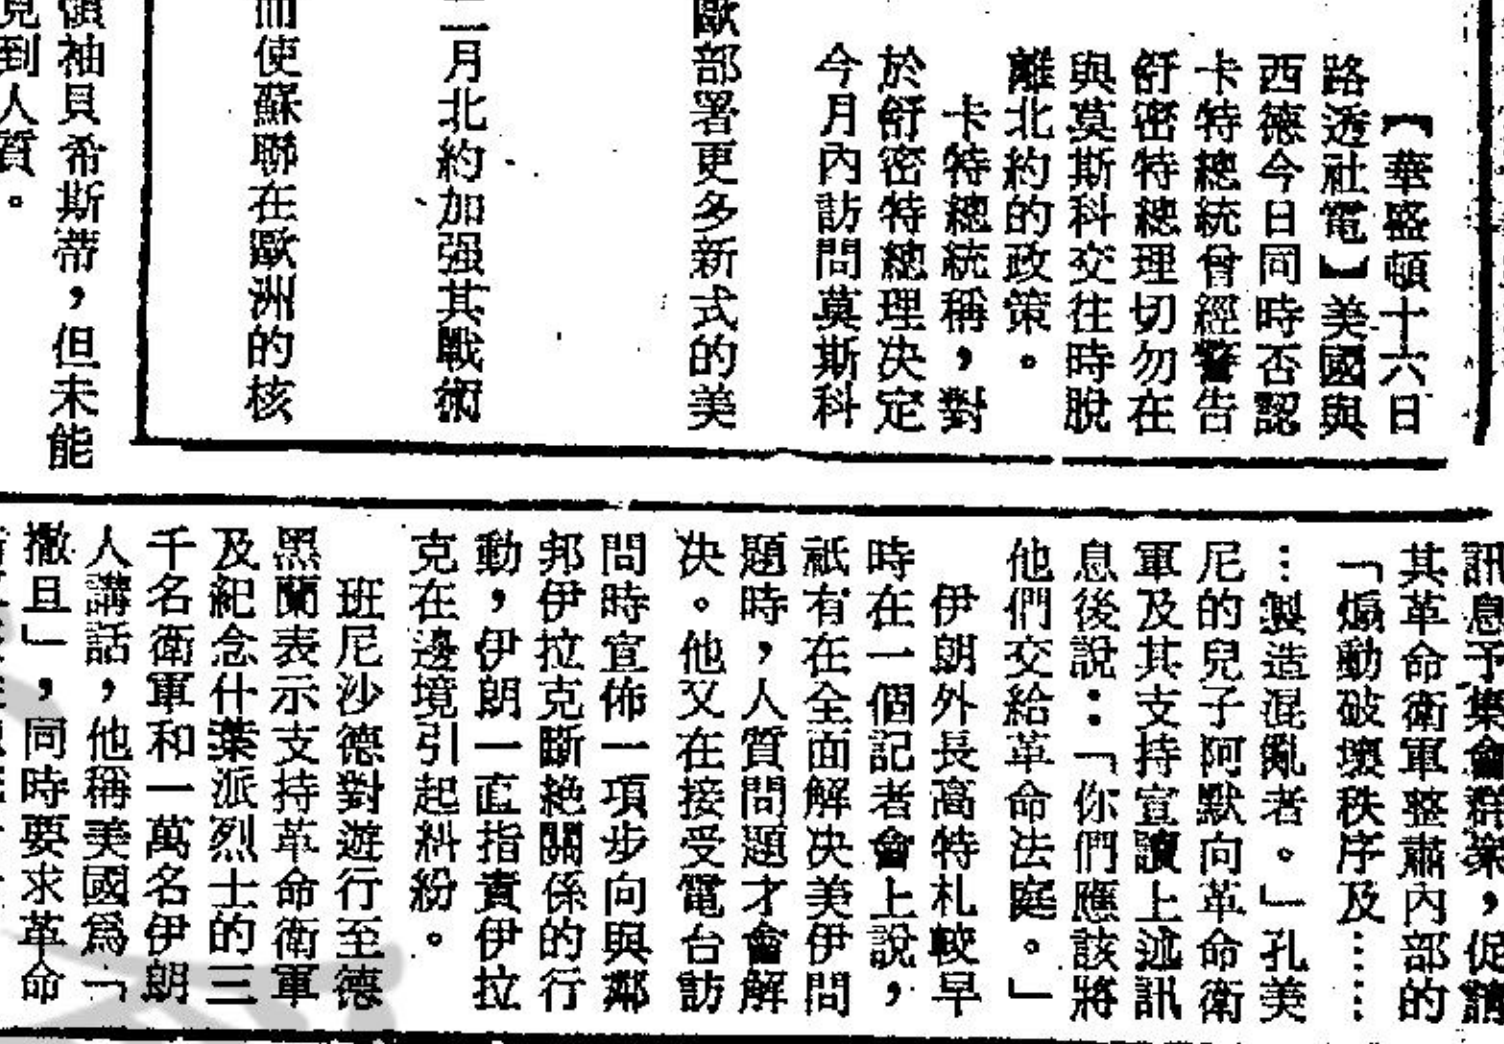 【華盛頓十六日
路透社電】美國與
西德今日同時否認
卡特總統曾經警告
舒密特總理切勿在
與莫斯科交往時脫
離北約的政策。
卡特總統稱，對
於舒密特總理決定
今月內訪問莫斯科
歐部署更多新式的美
二月北約加强其戰術
而使蘇聯在歐洲的核
領袖貝希斯蒂，但未能
見到人質。
訊息予集會群衆，促請
其革命衛軍整肅內部的
「煽動破壞秩序及……
…製造混亂者。」孔美
尼的兒子阿默向革命衛
軍及其支持宣讀上述訊
息後說：「你們應該將
他們交給革命法庭。」
伊朗外長高特札較早
時在一個記者會上說，
祇有在全面解決美伊問
題時，人質問題才會解
決。他又在接受電台訪
問時宣佈一項步向與鄰
邦伊拉克斷絶關係的行
動，伊朗一直指責伊拉
克在邊境引起糾紛。
班尼沙德對遊行至德
黑蘭表示支持革命衛軍
及紀念什葉派烈士的三
千名衛軍和一萬名伊朗
人講話，他稱美國爲「
撒旦」，同時要求革命